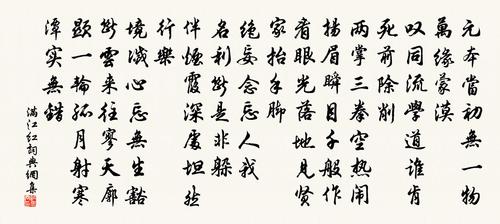 元本當初無一物
萬緣蒙漠
叹同流學道誰肯
死前除削
两掌三拳空热闹
揚眉瞬目千般作
看眼光落地見賢
家抬手脚
絕妄念忘人我
名利断是非躲
伴煙霞深處坦然
行樂
境滅心忘無生豁
断雲来往寥天廓
顯一輪孤月射寒
潭实無錯
满江红詞典網集